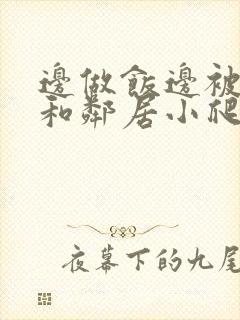 邊做飯邊被
和鄰居小爬
夜幕下的九尾